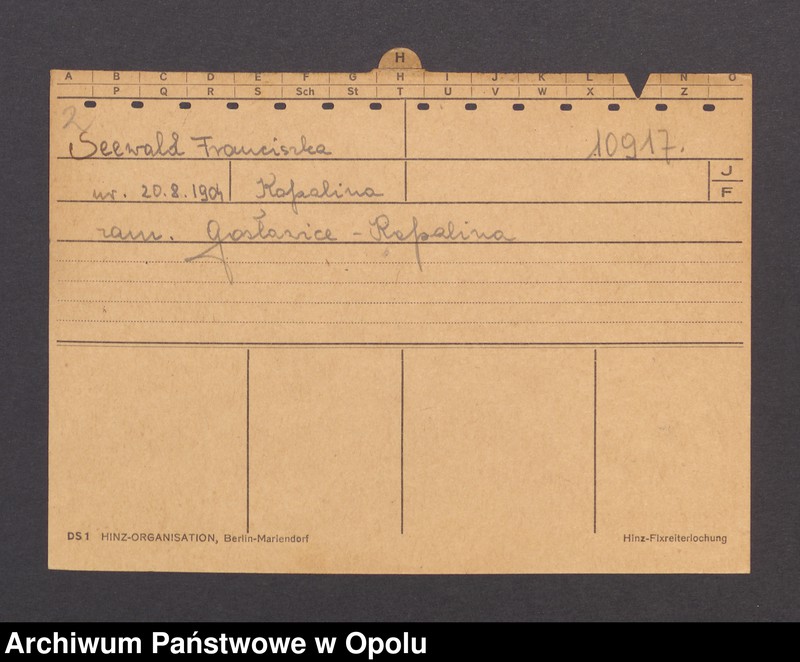 H
A B C D E F G H I J K L N O
P Q R S Sch St T U V W X Z
2
Seewald Franciszka 10917.
ur. 20.8.1904 Kopalina J
F
zam. Gosławice - Kopalina
DS1 HINZ-ORGANISATION, Berlin-Mariendorf Hinz-Fixreiterlochung
Archiwum Państwowe w Opolu